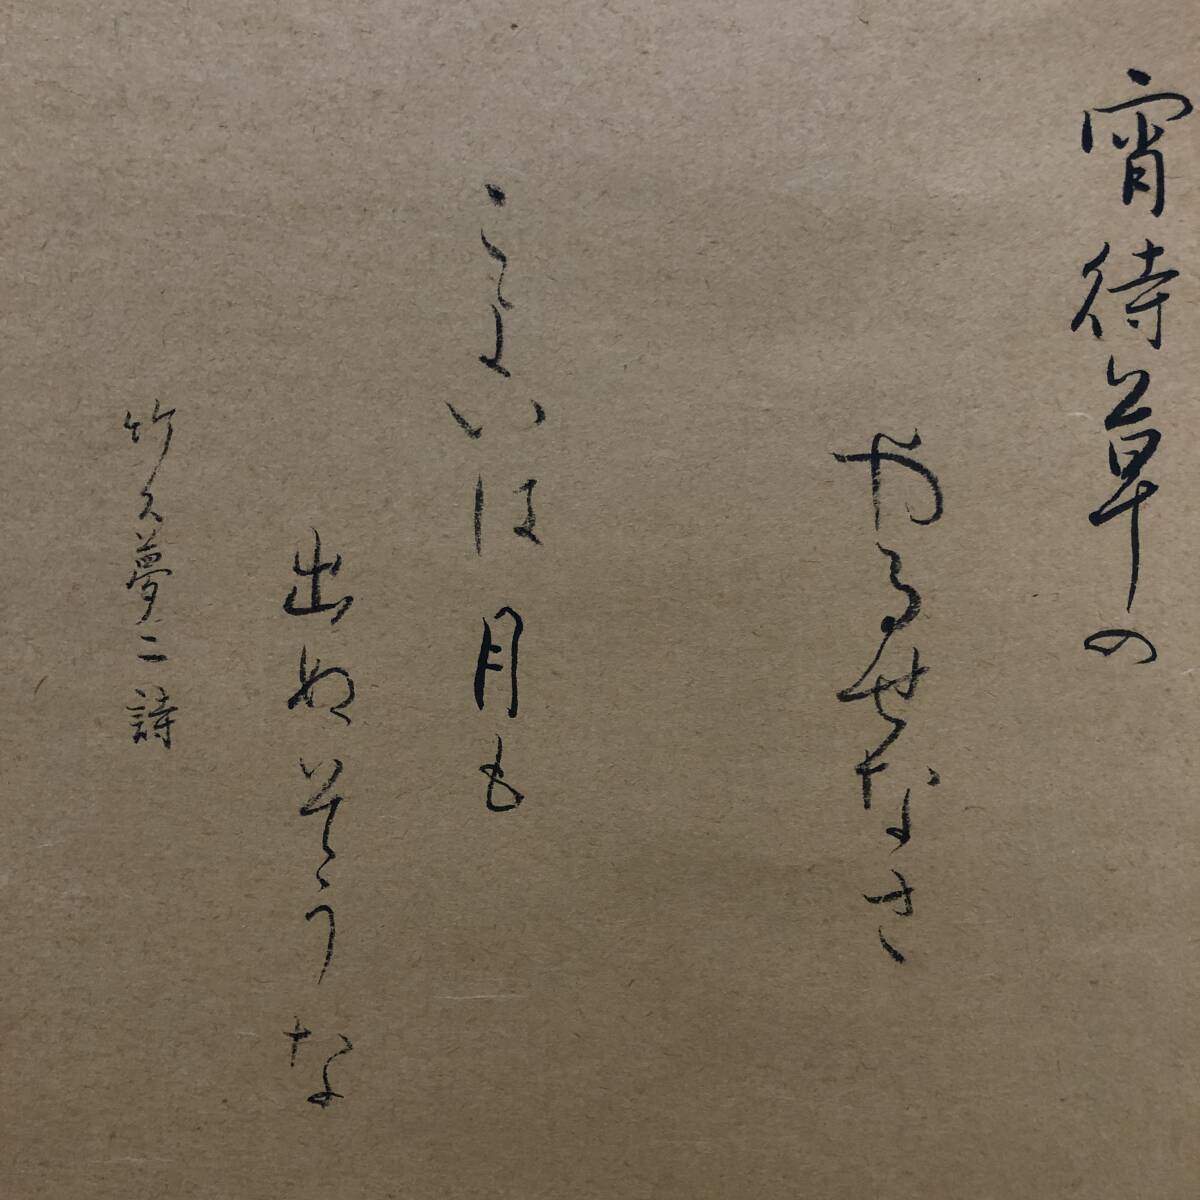 宵待草の
やるせなさ
こよいは月も
出ぬそうな
竹久夢二詩